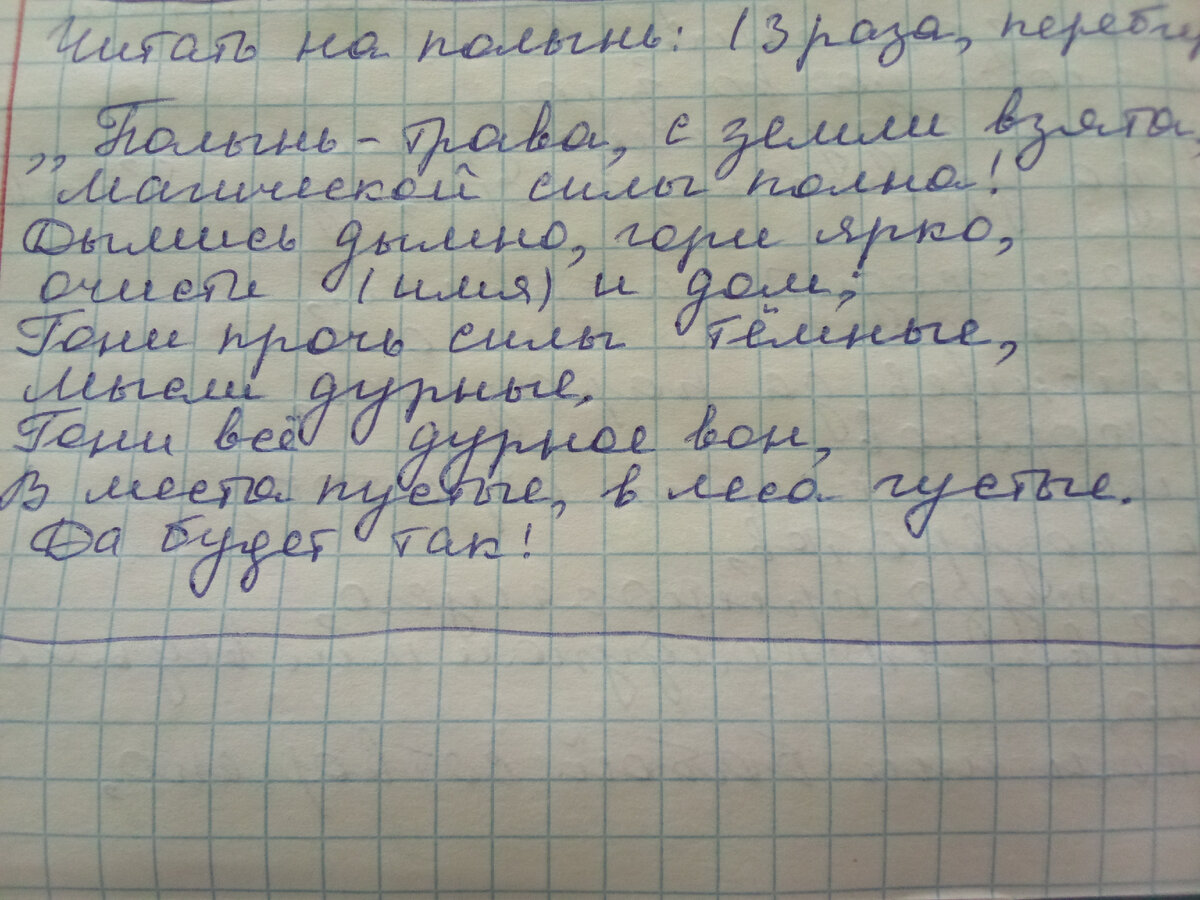 Читать на полынь: (3 раза, переби
„Полынь - трава, с земли взята,
магической силы полна!
Дымись дымно, гори ярко,
очисти (имя) и дом;
Гони прочь силы тёмные,
мысли дурные.
Гони всё дурное вон,
В места пустые, в леса густые.
Да будет так!